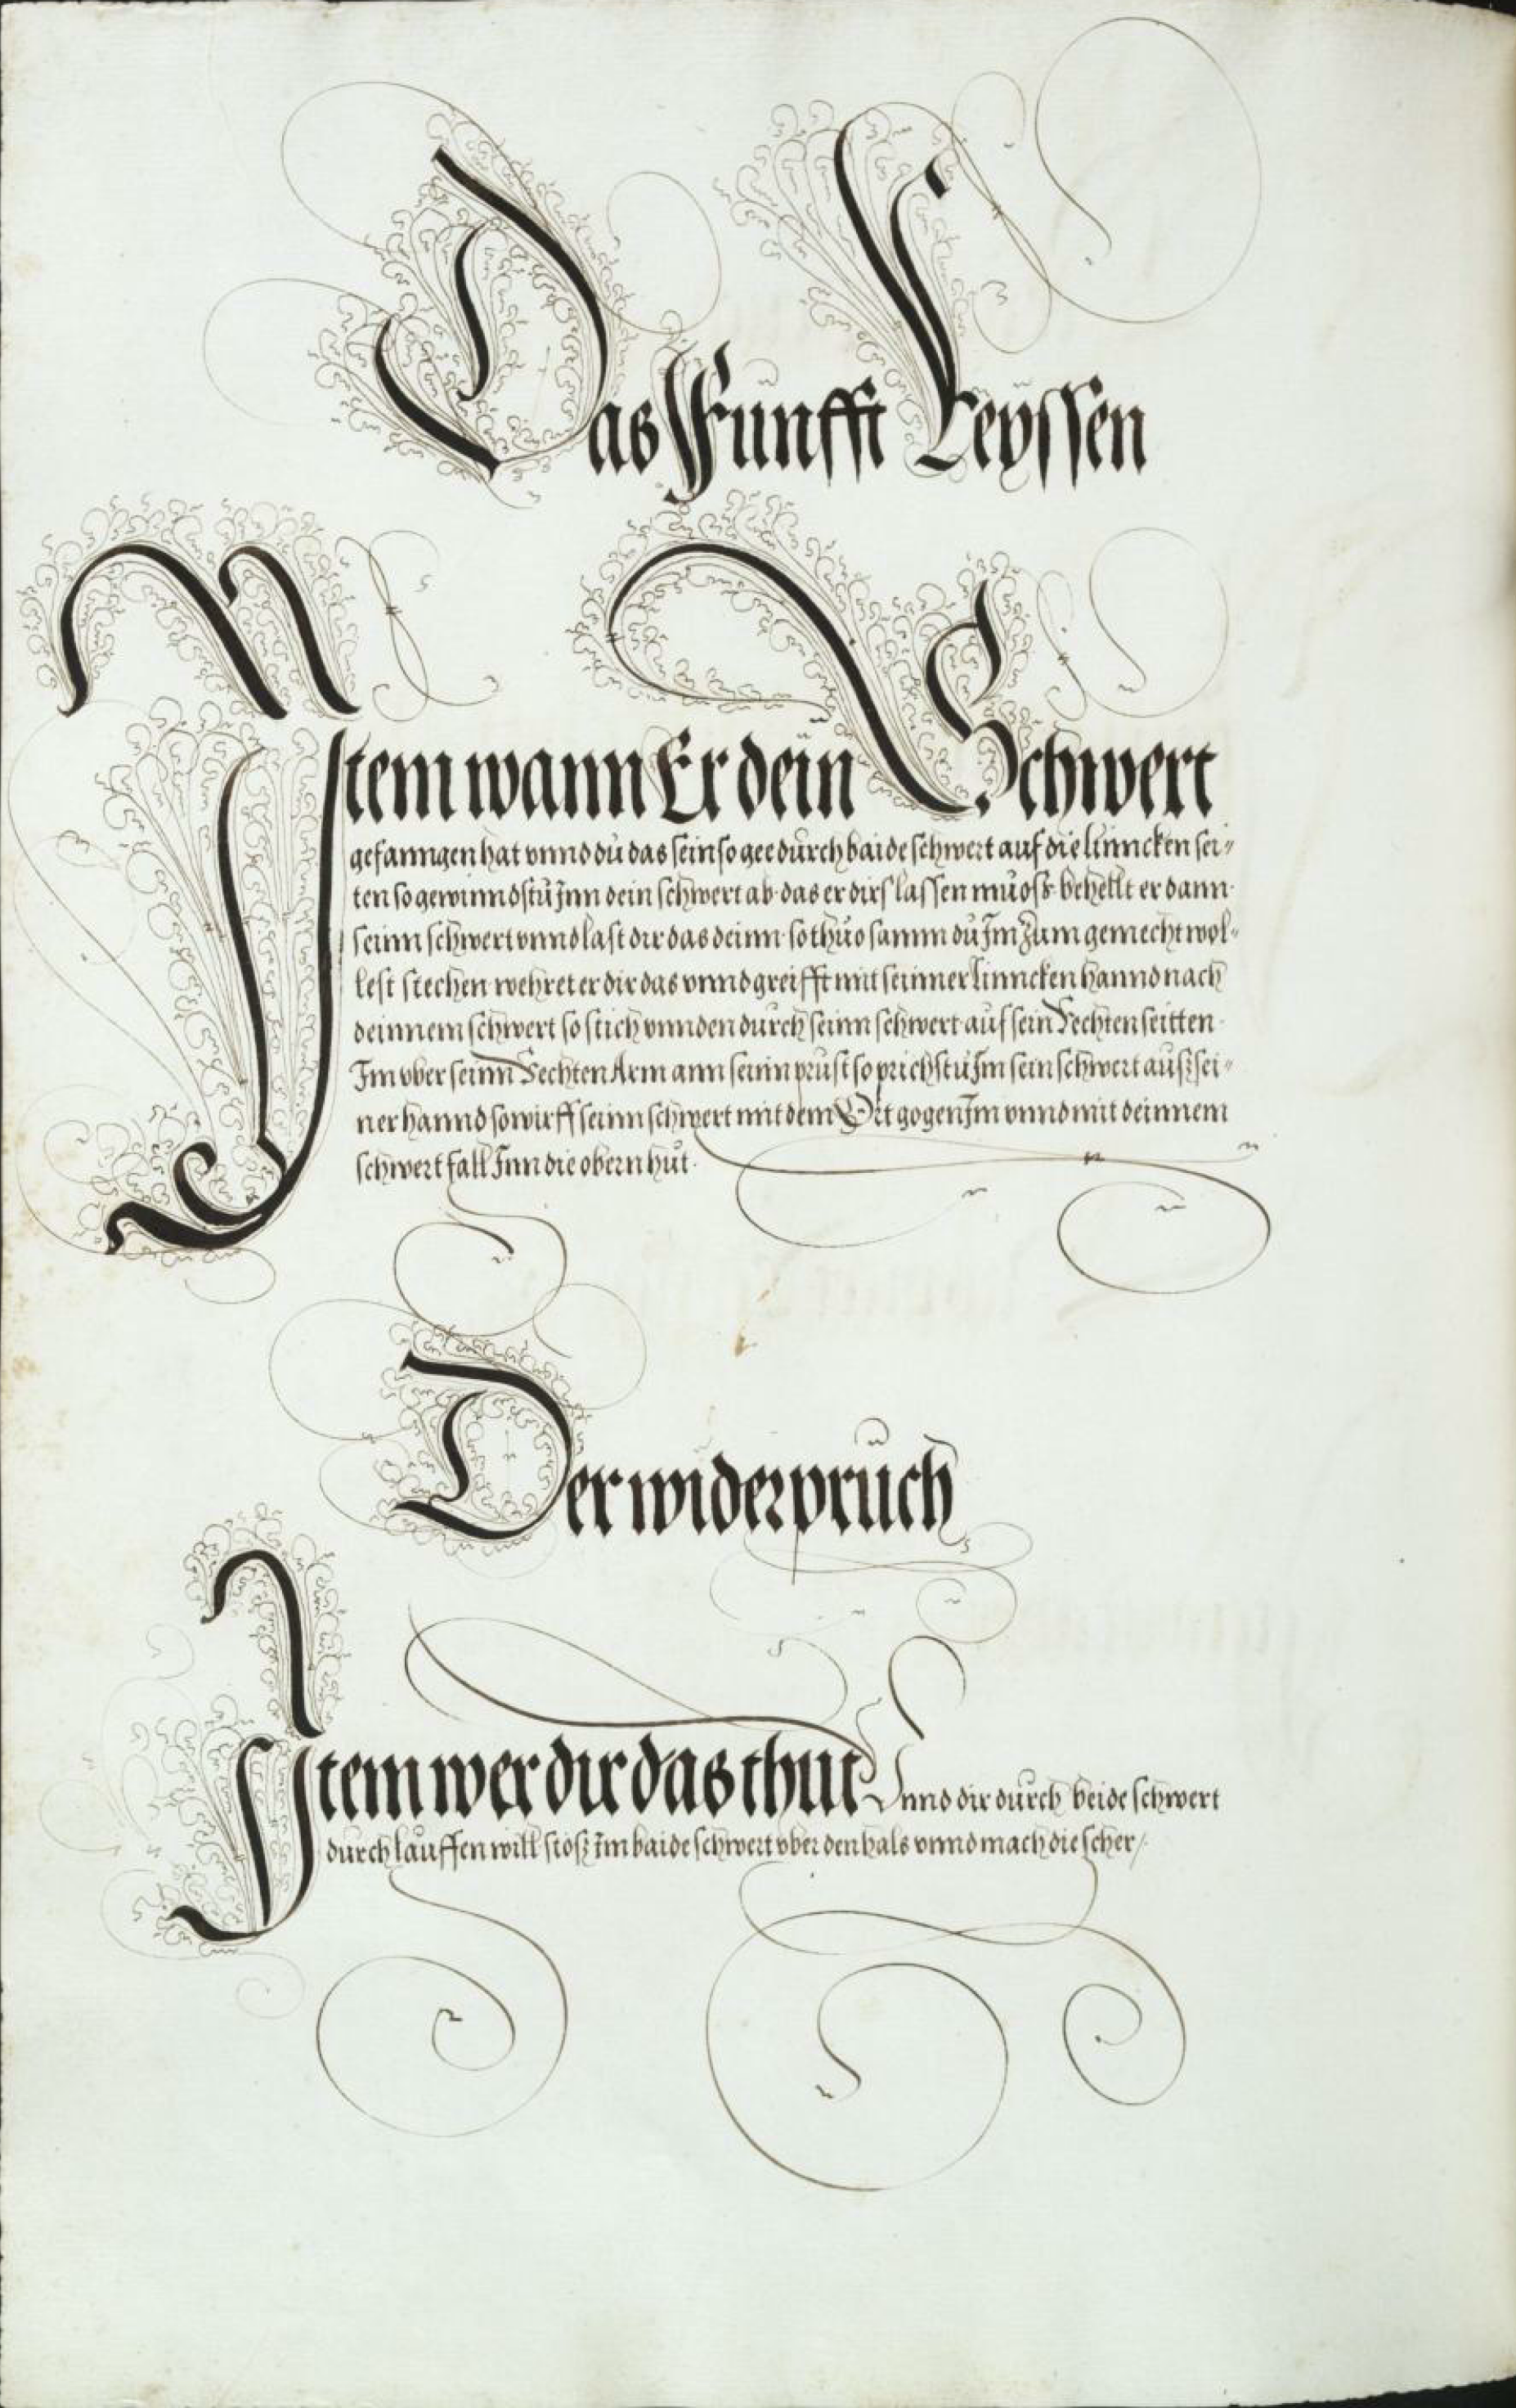 Das Fünfft Reyssen
Item wann Er dein Schwert
gefanngen hat vnnd dü das sein so gee dürch baide schwert auf die linncken sei-
ten so gewinndstü Inn dein schwert ab das er dirs lassen müoss behellt er dann
seinn schwert vnnd last dir das deinn so thüo samm dü Im züm gemecht wol-
lest stechen wehret er dir das vnnd greifft mit seinner linncken hannd nach
deinnem schwert so stich vnnden dürch seinn schwert auf sein Rechten seitten
Im vber seinn Rechten Arm ann seinn prüst so prichstü Im sein schwert aüsz sei-
ner hannd so wirff seinn schwert mit dem Ort gogen Im vnnd mit deinnem
schwert fall Inn die obern hüt.
Der widerprüch
Item wer dir das thüt Vnnd dir dürch beide schwert
dürch laüffen will stosz Im baide schwert vber den hals vnnd mach die scher /